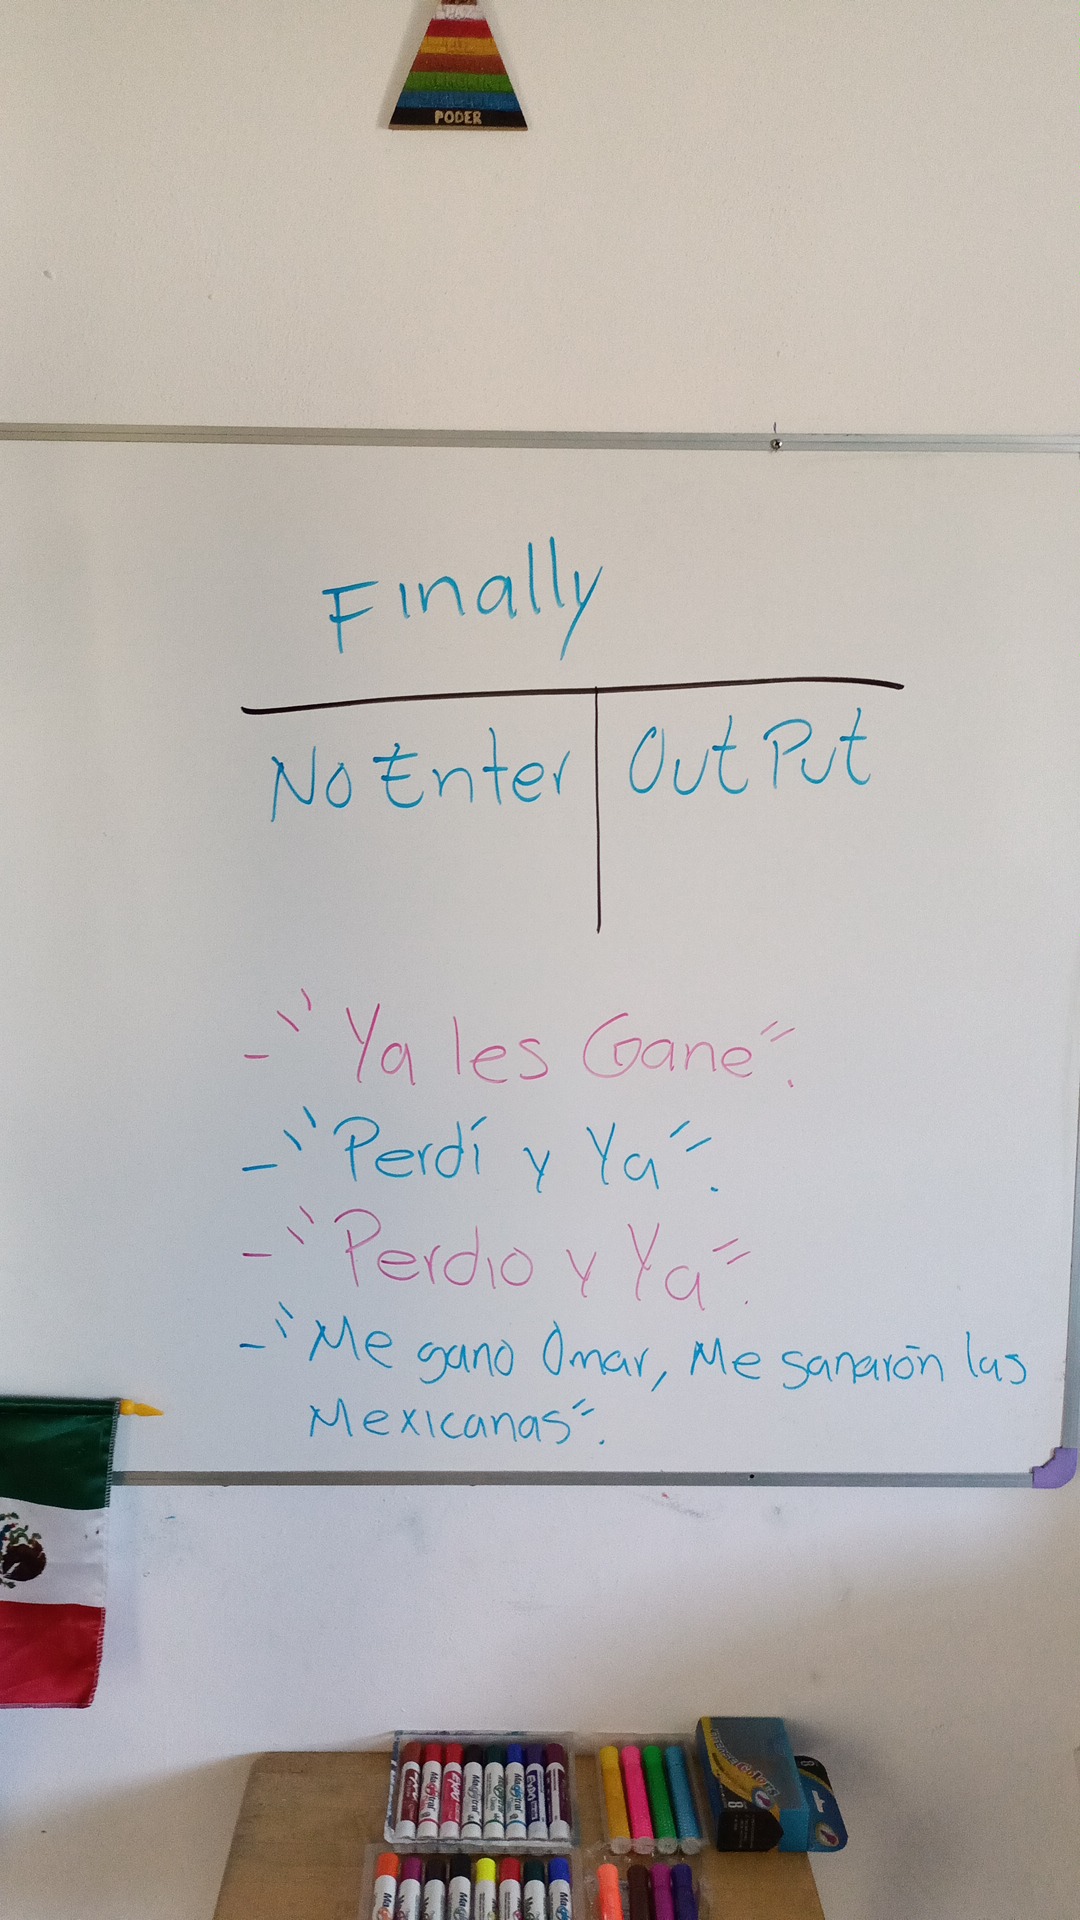 PAZ
PODER
Finally
No Enter | OutPut
- "Ya les Gane".
- "Perdí y Ya".
- "Perdio y Ya".
- "Me gano Omar, Me sanarón las
Mexicanas".